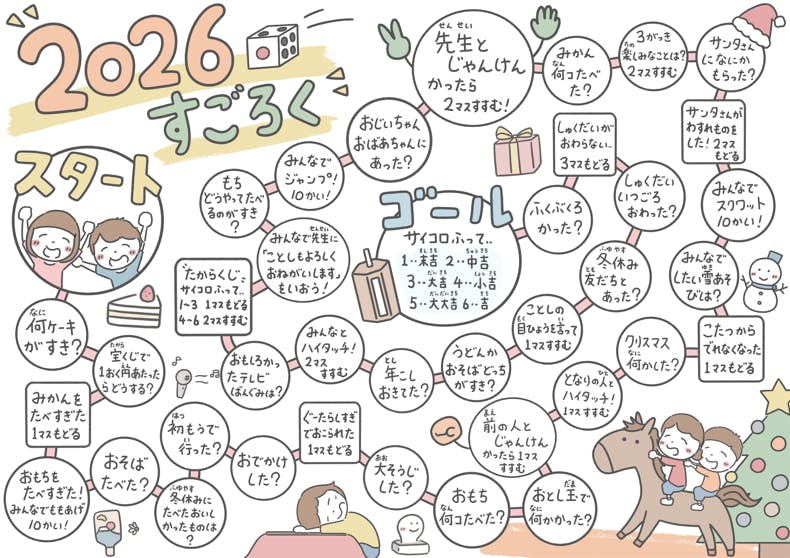 2026
すごろく
スタート
何ケーキ
なに
がすき？
宝くじで
たから
1おく円あたった
らどうする？
みかんを
たべすぎた
1マスもどる
おもちを
たべすぎた！
みんなでももあげ
10かい！
おそば
たべた？
冬休みに
ふゆやす
たべたおいし
かったものは
？
初もうで
はつ
行った？
い
おでかけ
した？
ぐーたらしすぎ
ておこられた
1マスもどる
大そうじ
おお
した？
おもち
何コたべた？
なん
おとし玉で
だま
何かかった？
なに
前の人と
まえ
じゃんけん
かったら1マス
すすむ
となりの人と
ひと
ハイタッチ！
1マスすすむ
クリスマス
何かした？
なに
こたつから
でれなくなった
1マスもどる
みんなで
したい雪あそ
ゆき
びは？
みんなで
スクワット
10かい！
サンタさんが
わすれものを
した！2マス
もどる
サンタさん
になにか
もらった？
3がっき
楽しみなことは？
たの
2マスすすむ
みかん
何コたべた
なん
？
せんせい
先生と
じゃんけん
かったら
2マスすすむ！
おじいちゃん
おばあちゃんに
あった？
みんなで
ジャンプ！
10かい！
もち
どうやってたべ
るのがすき
？
みんなで先生に
せんせい
「ことしもよろしく
おねがいします」
をいおう！
「たからくじ」
サイコロふって‥
1〜3 1マスもどる
4〜6 2マスすすむ
おもしろかっ
たテレビ
ばんぐみは？
みんなと
ハイタッチ！
2マス
すすむ
年こし
とし
おきてた？
うどんか
おそばどっち
がすき？
ことしの
目ひょうを言って
もく い
1マスすすむ
冬休み
ふゆやす
友だちと
とも
あった？
しゅくだい
いつごろ
おわった？
しゅくだいが
おわらない‥
3マスもどる
ふくぶくろ
かった？
ゴール
サイコロふって‥
1‥末吉 2‥中吉
3‥大吉 4‥小吉
5‥大大吉 6‥吉